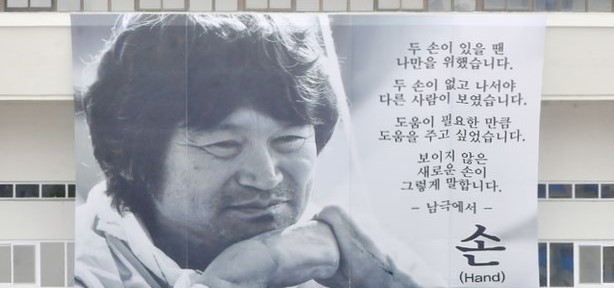 두 손이 있을 땐
나만을 위했습니다.
두 손이 없고 나서야
다른 사람이 보였습니다.
도움이 필요한 만큼
도움을 주고 싶었습니다.
보이지 않은
새로운 손이
그렇게 말합니다.
- 남극에서 -
손
(Hand)